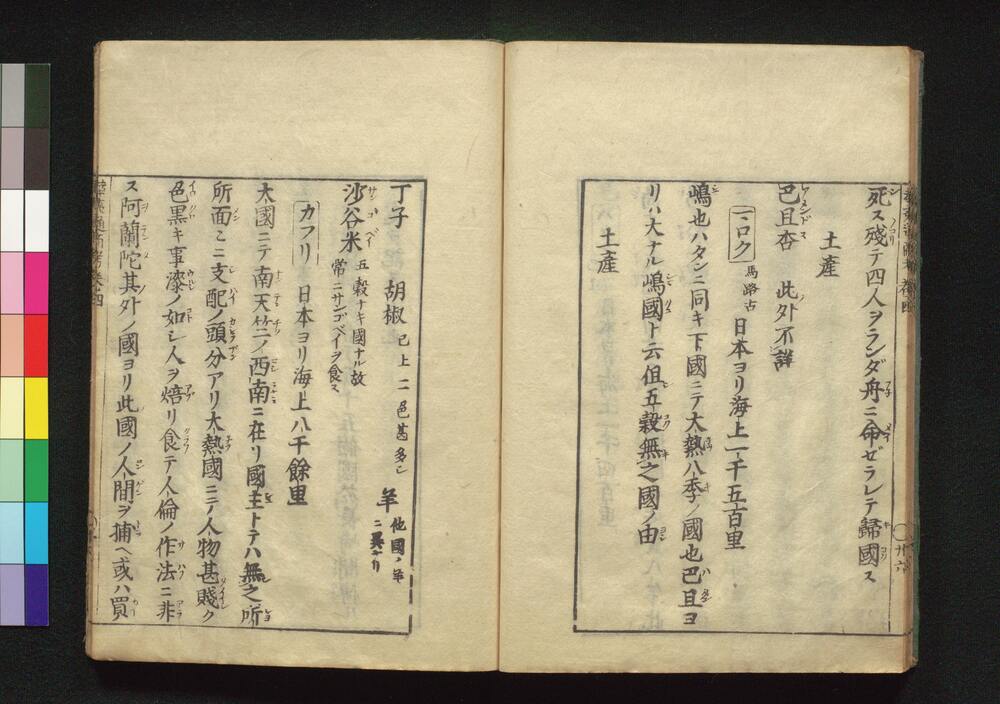 死ス殘テ四人ヲランダ舟ニ命ゼラレテ歸國ス
土產
巴且杏 此外不詳
モロク 馬路古 日本ヨリ海上一千五百里
嶋也ハタンニ同キ下國ニテ大熱八季ノ國也巴且ヨ
リハ大ナル嶋國ト云伹五穀無之國ノ由
土產
丁子 胡椒 已上二色甚多シ 羊 他國ノ羊ニ異ナリ
沙谷米 五穀ナキ國ナル故常ニサンゴベイヲ食ス
カフリ 日本ヨリ海上八千餘里
大國ニテ南天竺ノ西南ニ在リ國主トテハ無之所
所面々ニ支配ノ頭分アリ大熱國ニテ人物甚賤ク
色黒キ事漆ノ如シ人ヲ焙リ食テ人倫ノ作法ニ非
ス阿蘭陀其外ノ國ヨリ此國ノ人間ヲ捕ヘ或ハ買